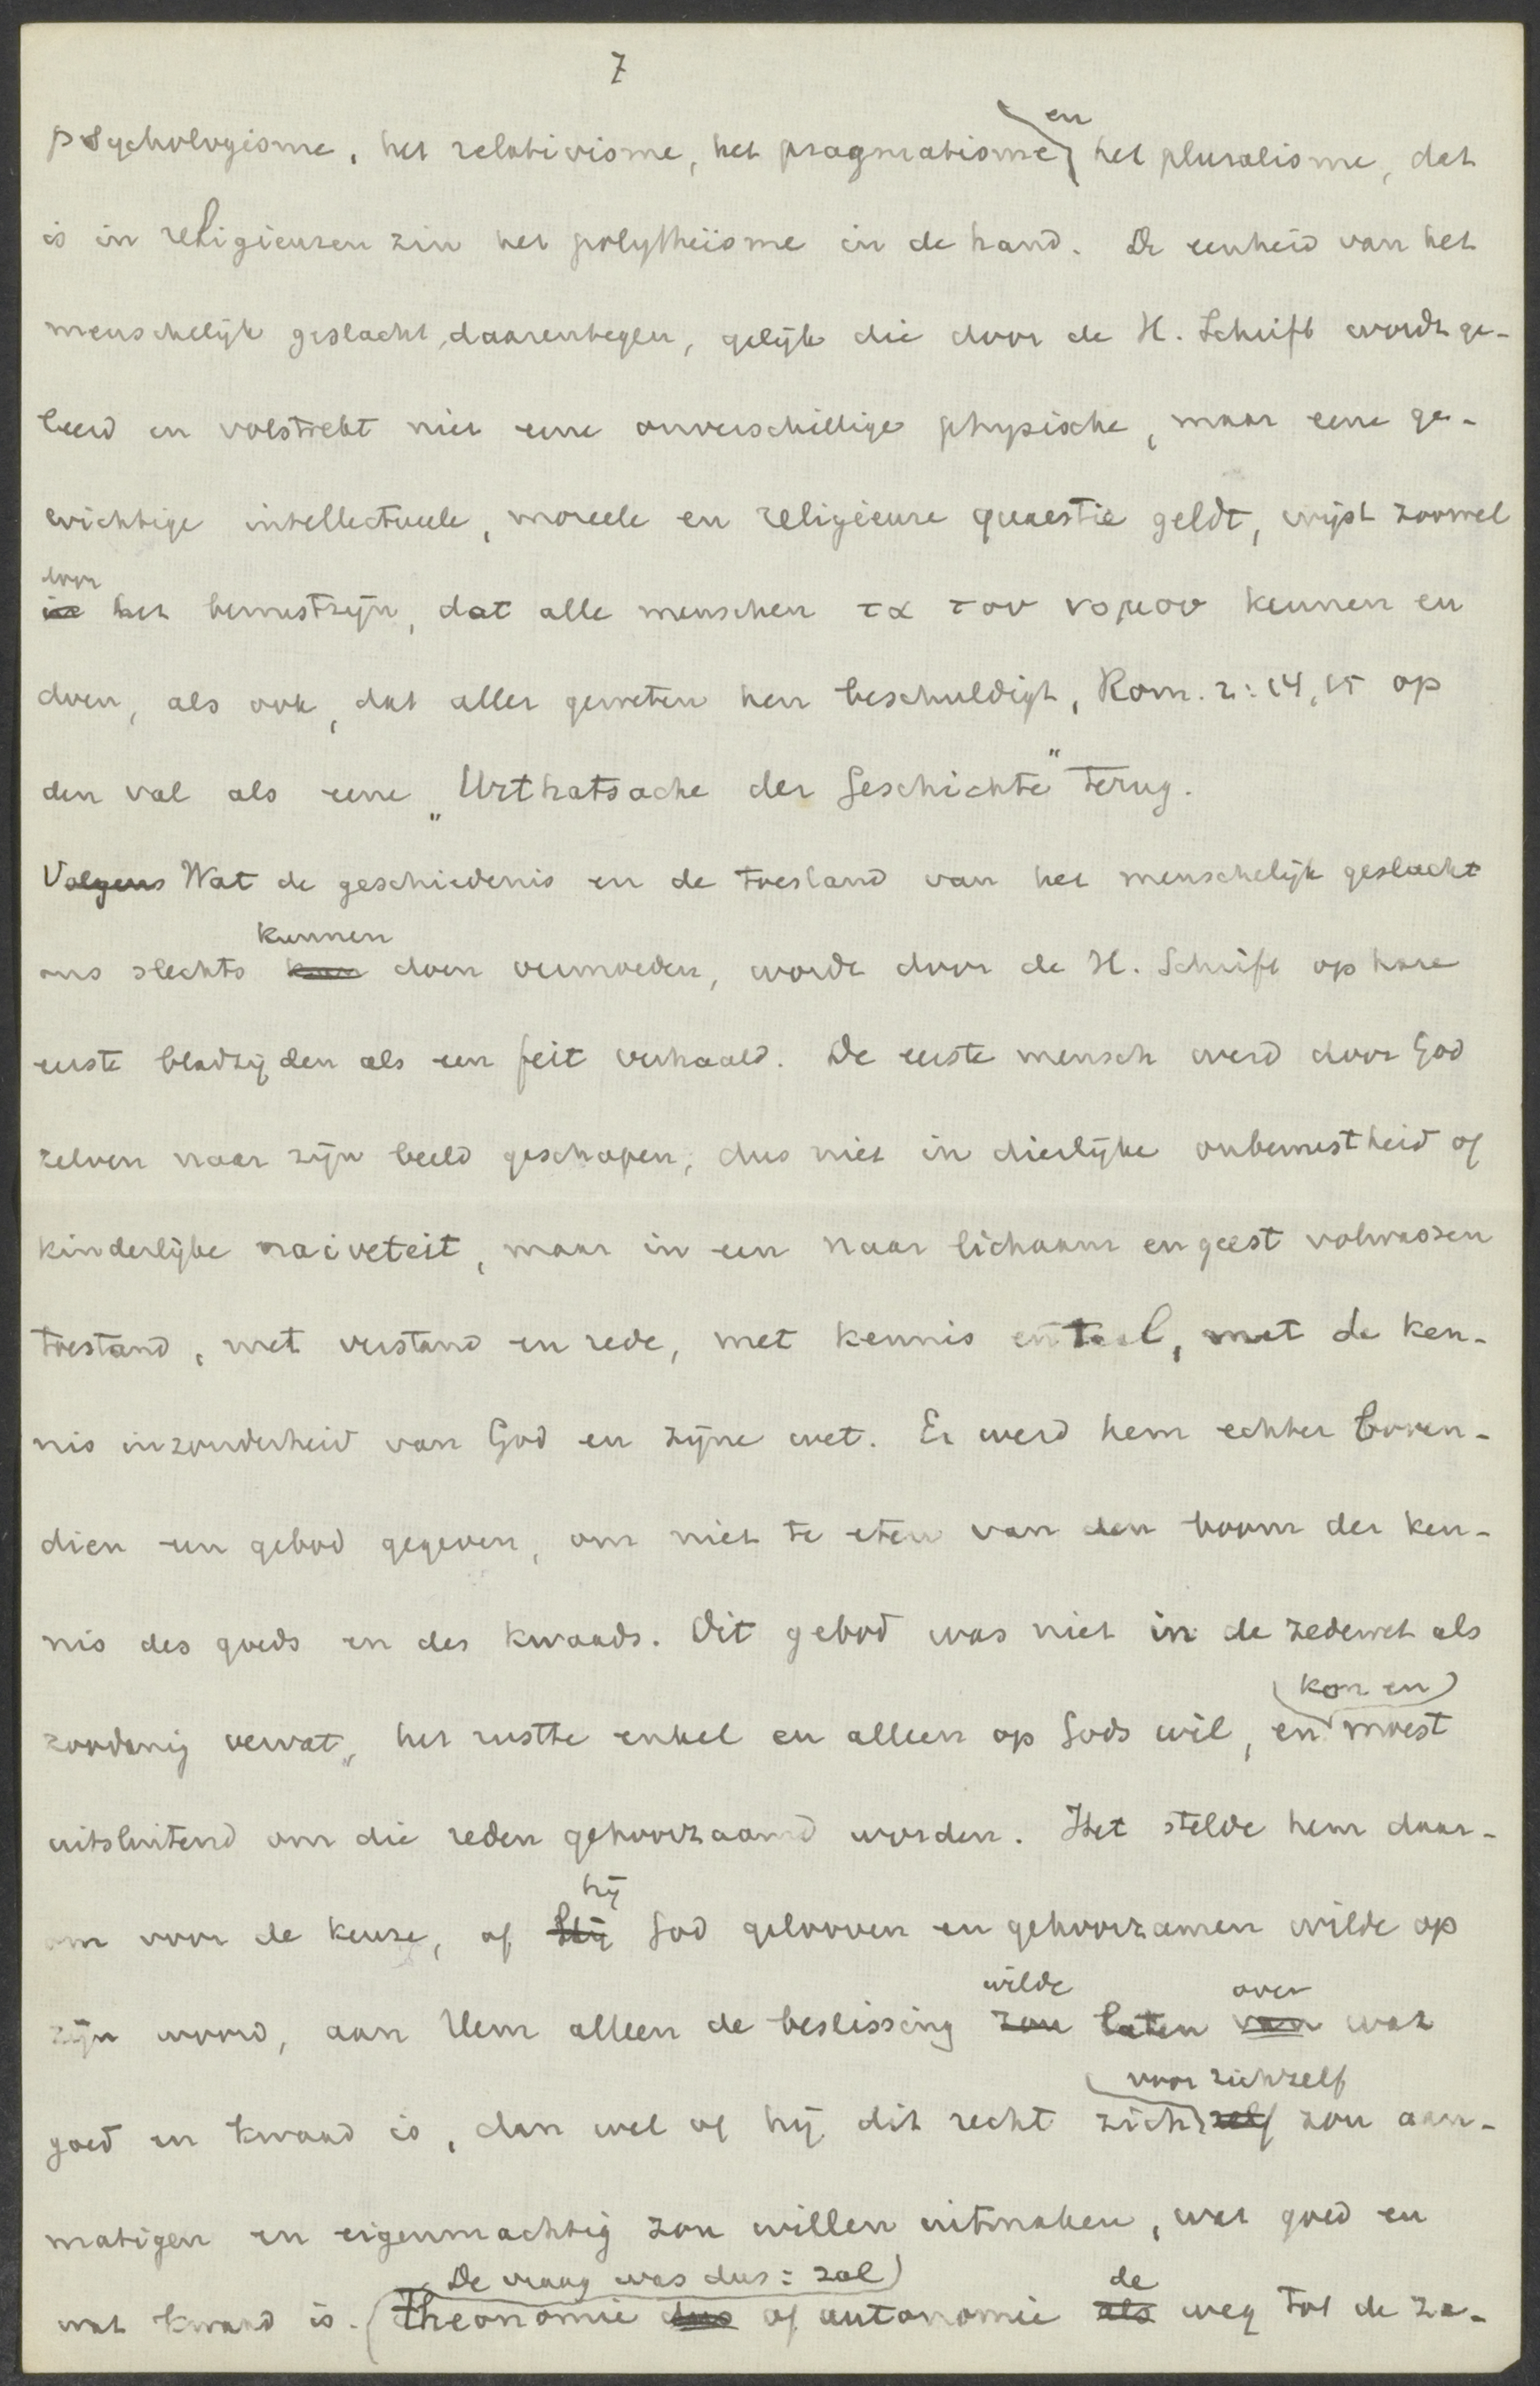 7
psychologisme, het relativisme, het pragmatisme en het pluralisme, dat
is in religieuzen zin het polytheïsme in de hand. De eenheid van het
menschelijk geslacht, daarentegen, gelijk die door de H. Schrift wordt ge-
leerd en volstrekt niet eene onverschillige physische, maar eene ge-
wichtige intellectueele, moreele en religieuse quaestie geldt, wijst zoowel
door
in het bewustzijn, dat alle menschen τα του νομου kennen en
doen, als ook, dat aller geweten hen beschuldigt, Rom. 2:14,15 op
den val als eene „Urthatsache der Geschichte" terug.
Volgens Wat de geschiedenis en de toestand van het menschelijk geslacht
kunnen
ons slechts kan doen vermoeden, wordt door de H. Schrift op hare
eerste bladzijden als een feit verhaald. De eerste mensch werd door God
zelven naar zijn beeld geschapen, dus niet in dierlijke onbewustheid of
kinderlijke naiveteit, maar in een naar lichaam en geest volwassen
toestand, met verstand en rede, met kennis en taal, met de ken-
nis inzonderheid van God en zijne wet. Er werd hem echter boven-
dien een gebod gegeven, om niet te eten van den boom der ken-
nis des goeds en des kwaads. Dit gebod was niet in de zedewet als
(kon en)
zoodanig vervat, het rustte enkel en alleen op Gods wil, en moest
uitsluitend om die reden gehoorzaamd worden. Het stelde hem daar-
hij
om voor de keuze, of Hij God gelooven en gehoorzamen wilde op
wilde over
zijn woord, aan Hem alleen de beslissing zou laten van wat
voor zichzelf
goed en kwaad is, dan wel of hij dit recht zichzelf zou aan-
matigen en eigenmachtig zou willen uitmaken, wat goed en
(De vraag was dus: zal) de
wat kwaad is. (Theonomie dus of autonomie als weg tot de za-